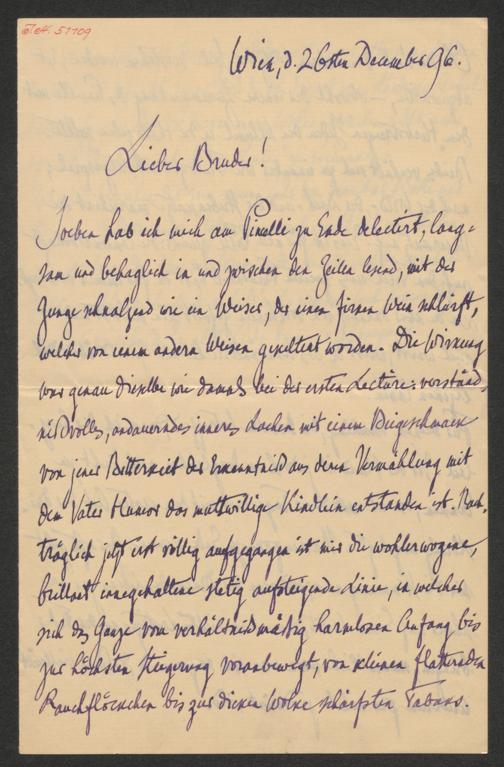 Wien, d. 26sten December 96.
Lieber Bruder!
Soeben hab ich mich am Pinelli zu Ende delectert, lang-
sam und behaglich in und zwischen den Zeilen lesend, mit der
Zunge schnalzend wie ein Weiser, der einen firnen Wein schlürft,
welcher von einem andern Weisen gekeltert worden. Die Wirkung
war genau dieselbe wie damals bei der ersten Lectüre: verständ-
nißvolles, andauerndes inneres Lachen mit einem Beigeschmack
von jener Bitterkeit der Erkenntniß aus deren Vermählung mit
dem Vater Humor das muthwillige Kindlein entstanden ist. Nach-
träglich jetzt erst völlig aufgegangen ist mir die wohlerwogene,
brillant innegehaltene stetig aufsteigende Linie, in welcher
sich das Ganze vom verhältnißmäßig harmlosen Anfang bis
zur höchsten Steigerung voranbewegt, von kleinen flatternden
Rauchflöckchen bis zur dicken Wolke schärfsten Tabaks.